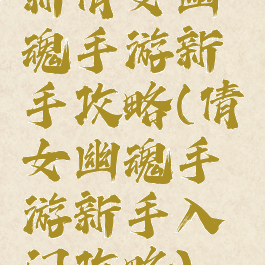 新倩女幽
魂手游新
手攻略(倩
女幽魂手
游新手入
门攻略)